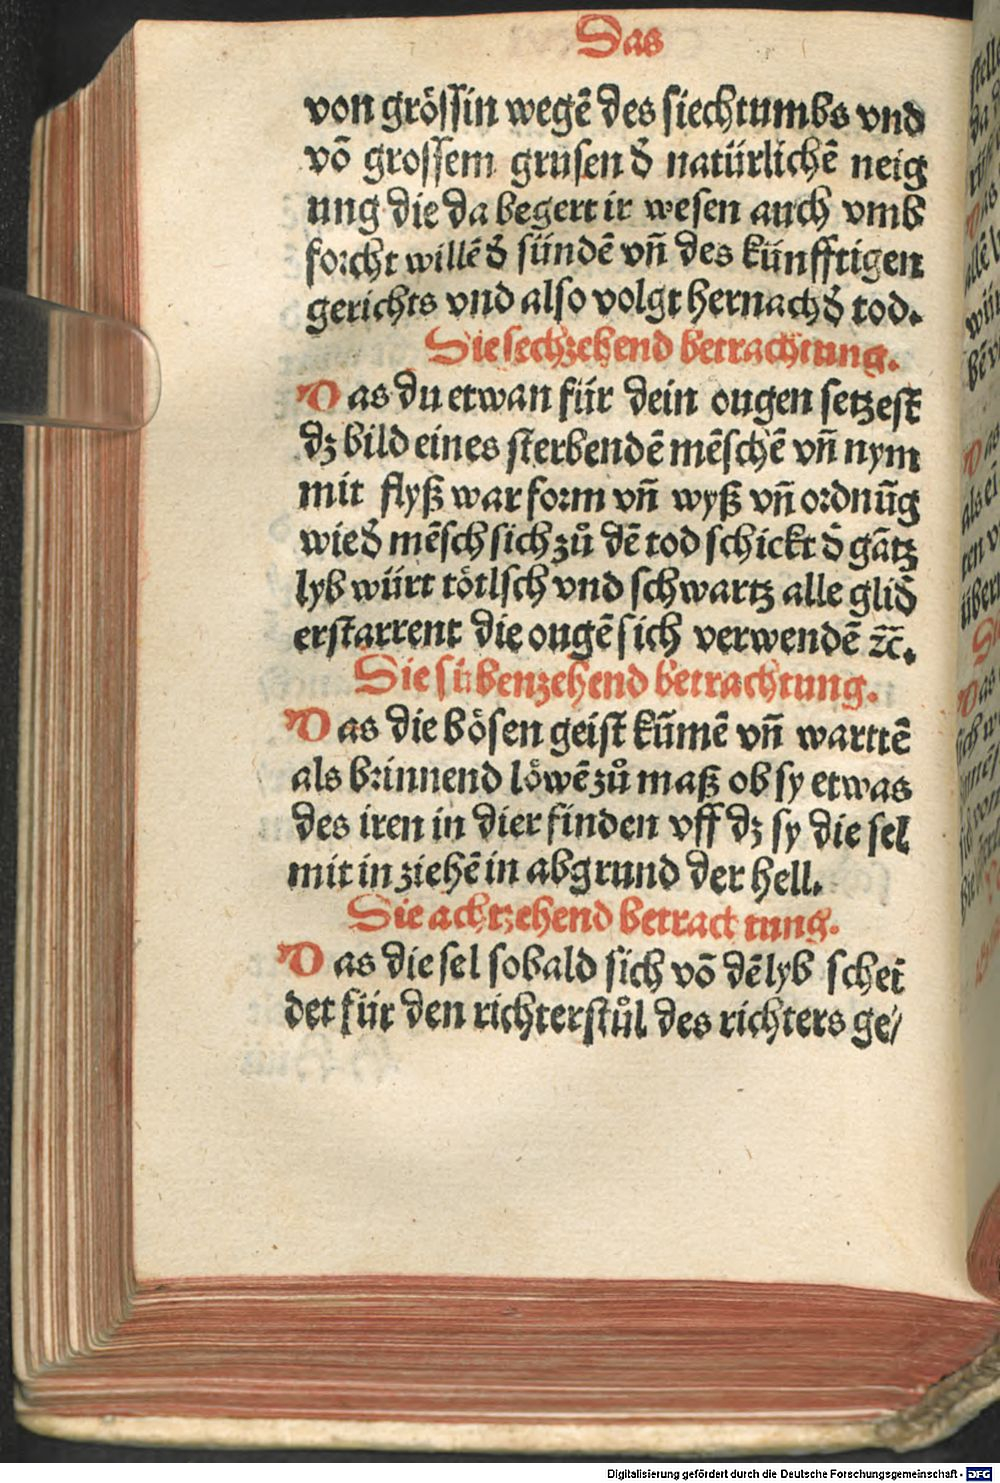 Das
von grössin wegē des siechtumbs vnd
vō grossem grusen đ natürlichē neig
ung die da begert ir wesen auch vmb
forcht willē đ sündē vñ des künfftigen
gerichts vnd also volgt hernach đ tod.
Die sechzehend betrachtung.
Das du etwan für dein ougen setzest
dz bild eines sterbendē mēschē vñ nym
mit flyß war form vñ wyß vñ ordnūg
wie đ mēsch sich zů dē tod schickt đ gātz
lyb würt tötlsch vnd schwartz alle gliđ
erstarrent die ougē sich verwendē ⁊c̄.
Die sübenzehend betrachtung.
Das die bösen geist kūmē vñ warttē
als brinnend löwē zů maß ob sy etwas
des iren in dier finden vff dz sy die sel
mit in ziehē in abgrund der hell.
Die achtzehend betrachtung.
Das die sel sobald sich vō dē lyb schei
det für den richterstůl des richters ge/
Digitalisierung gefördert durch die Deutsche Forschungsgemeinschaft - DFG